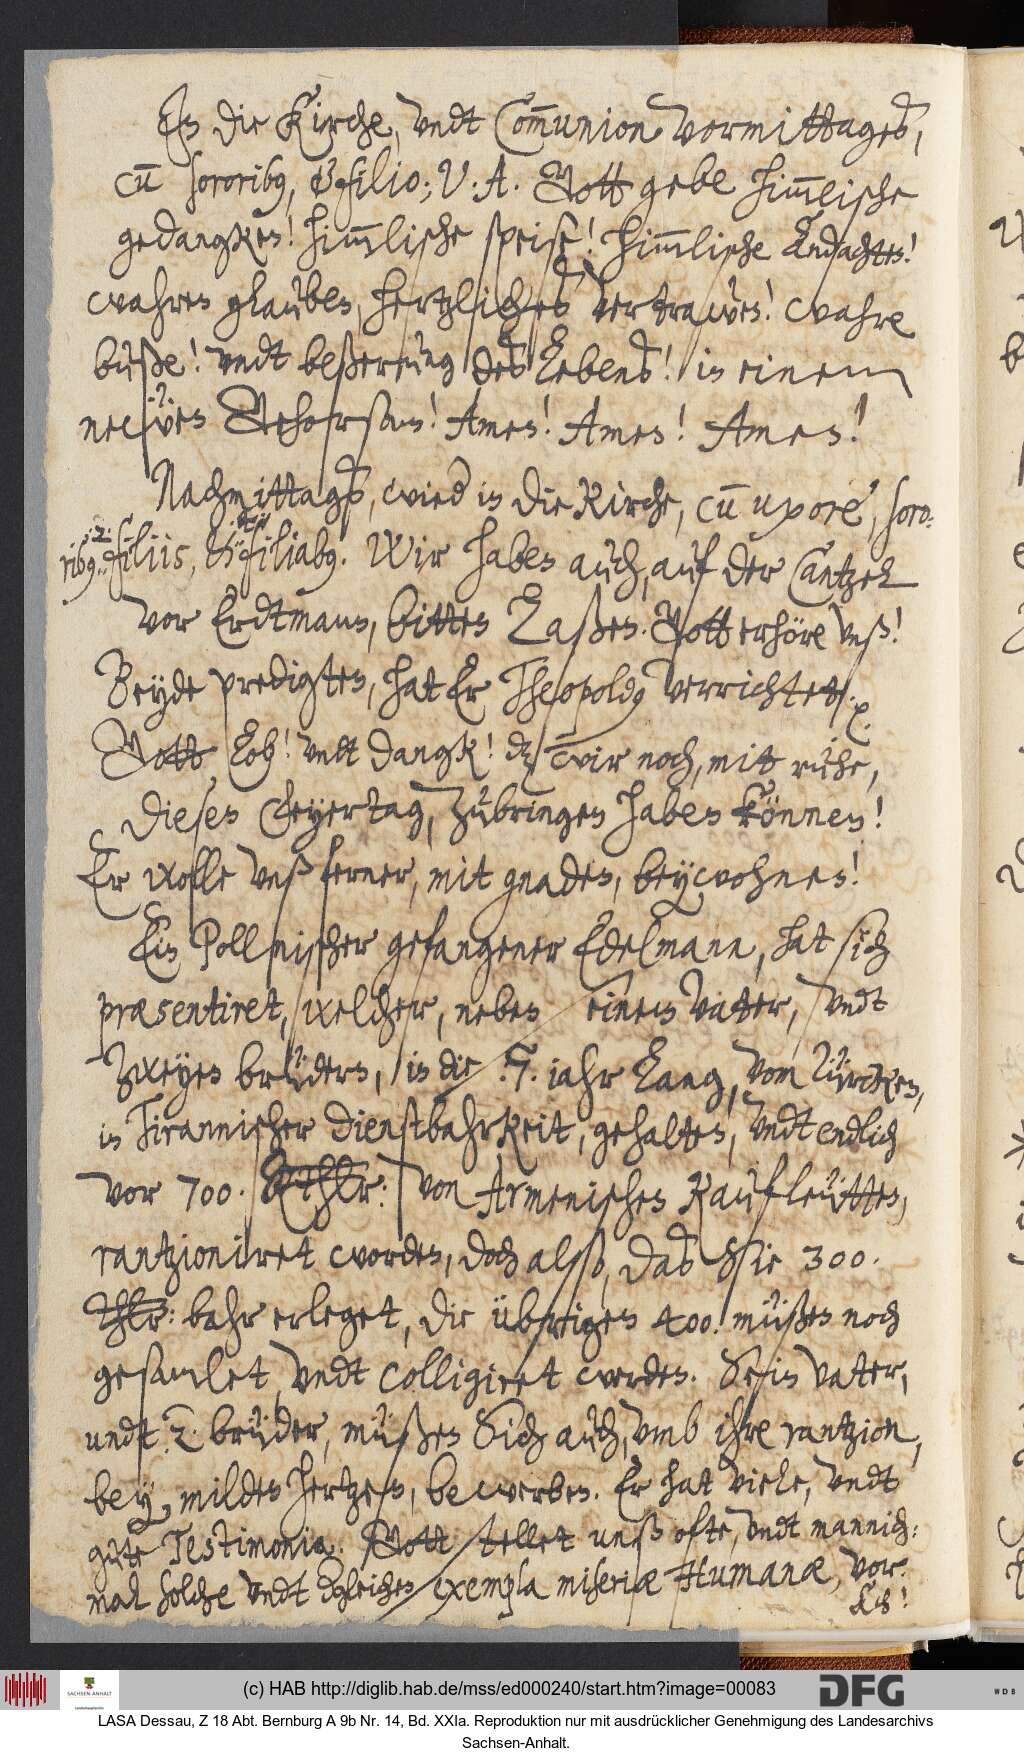 In die Kirche, undt Com̄union vormittages,
cū sororib9, & filio; V. A. Gott gebe him̄lische
gedangken! him̄lische speise! him̄lische Andachten!
wahren glauben, hertzliches Vertrawen! wahre
buße! undt beßerung des Lebens! in einem
newen Gehorsam! Amen! Amen! Amen!
Nachmittags, wied in die Kirche, cū uxore, soro-
rib9, 2 filiis, & filiab9. Wir haben auch, auf der Cantzel
vor Erdtmann, bitten Laßen. Gott erhöre unß!
Beyde predigten, hat Er Theopold9 verrichtet. p.
Gott Lob! undt dangk! dz wir noch, mit ruhe,
diesen Feyertag, zubringen haben können!
Er wolle unß ferner, mit gnaden, beywohnen!
Ein Pollnischer gefangener Edelmann, hat sich
præsentiret, welcher, neben seinem Vater, undt
Zweyen brüdern, in die .7. iahr Lang, vom Türcken,
in Tirannischer dienstbahrkeit, gehalten, undt endlich
vor 700. Rthlr: von Armenischen Kaufleütten,
rantzioniret worden, doch alßo, das Sie 300.
Thlr: bahr erleget, die übrigen 400. müßen noch
gesamlet, undt colligiret werden. Sein Vater,
undt .2. brüder, müßen Sich auch, umb ihre rantzion,
bey milden hertzen, bewerben. Er hat viele, undt
gute Testimonia. Gott stellet unß ofte, undt mannich:
mal solche undt dergleichen exempla miseriæ Humanæ, vor.
Ach!
(c) HAB http://diglib.hab.de/mss/ed000240/start.htm?image=00083
SACHSEN-ANHALT
DFG
WDB
LASA Dessau, Z 18 Abt. Bernburg A 9b Nr. 14, Bd. XXIa. Reproduktion nur mit ausdrücklicher Genehmigung des Landesarchivs
Sachsen-Anhalt.